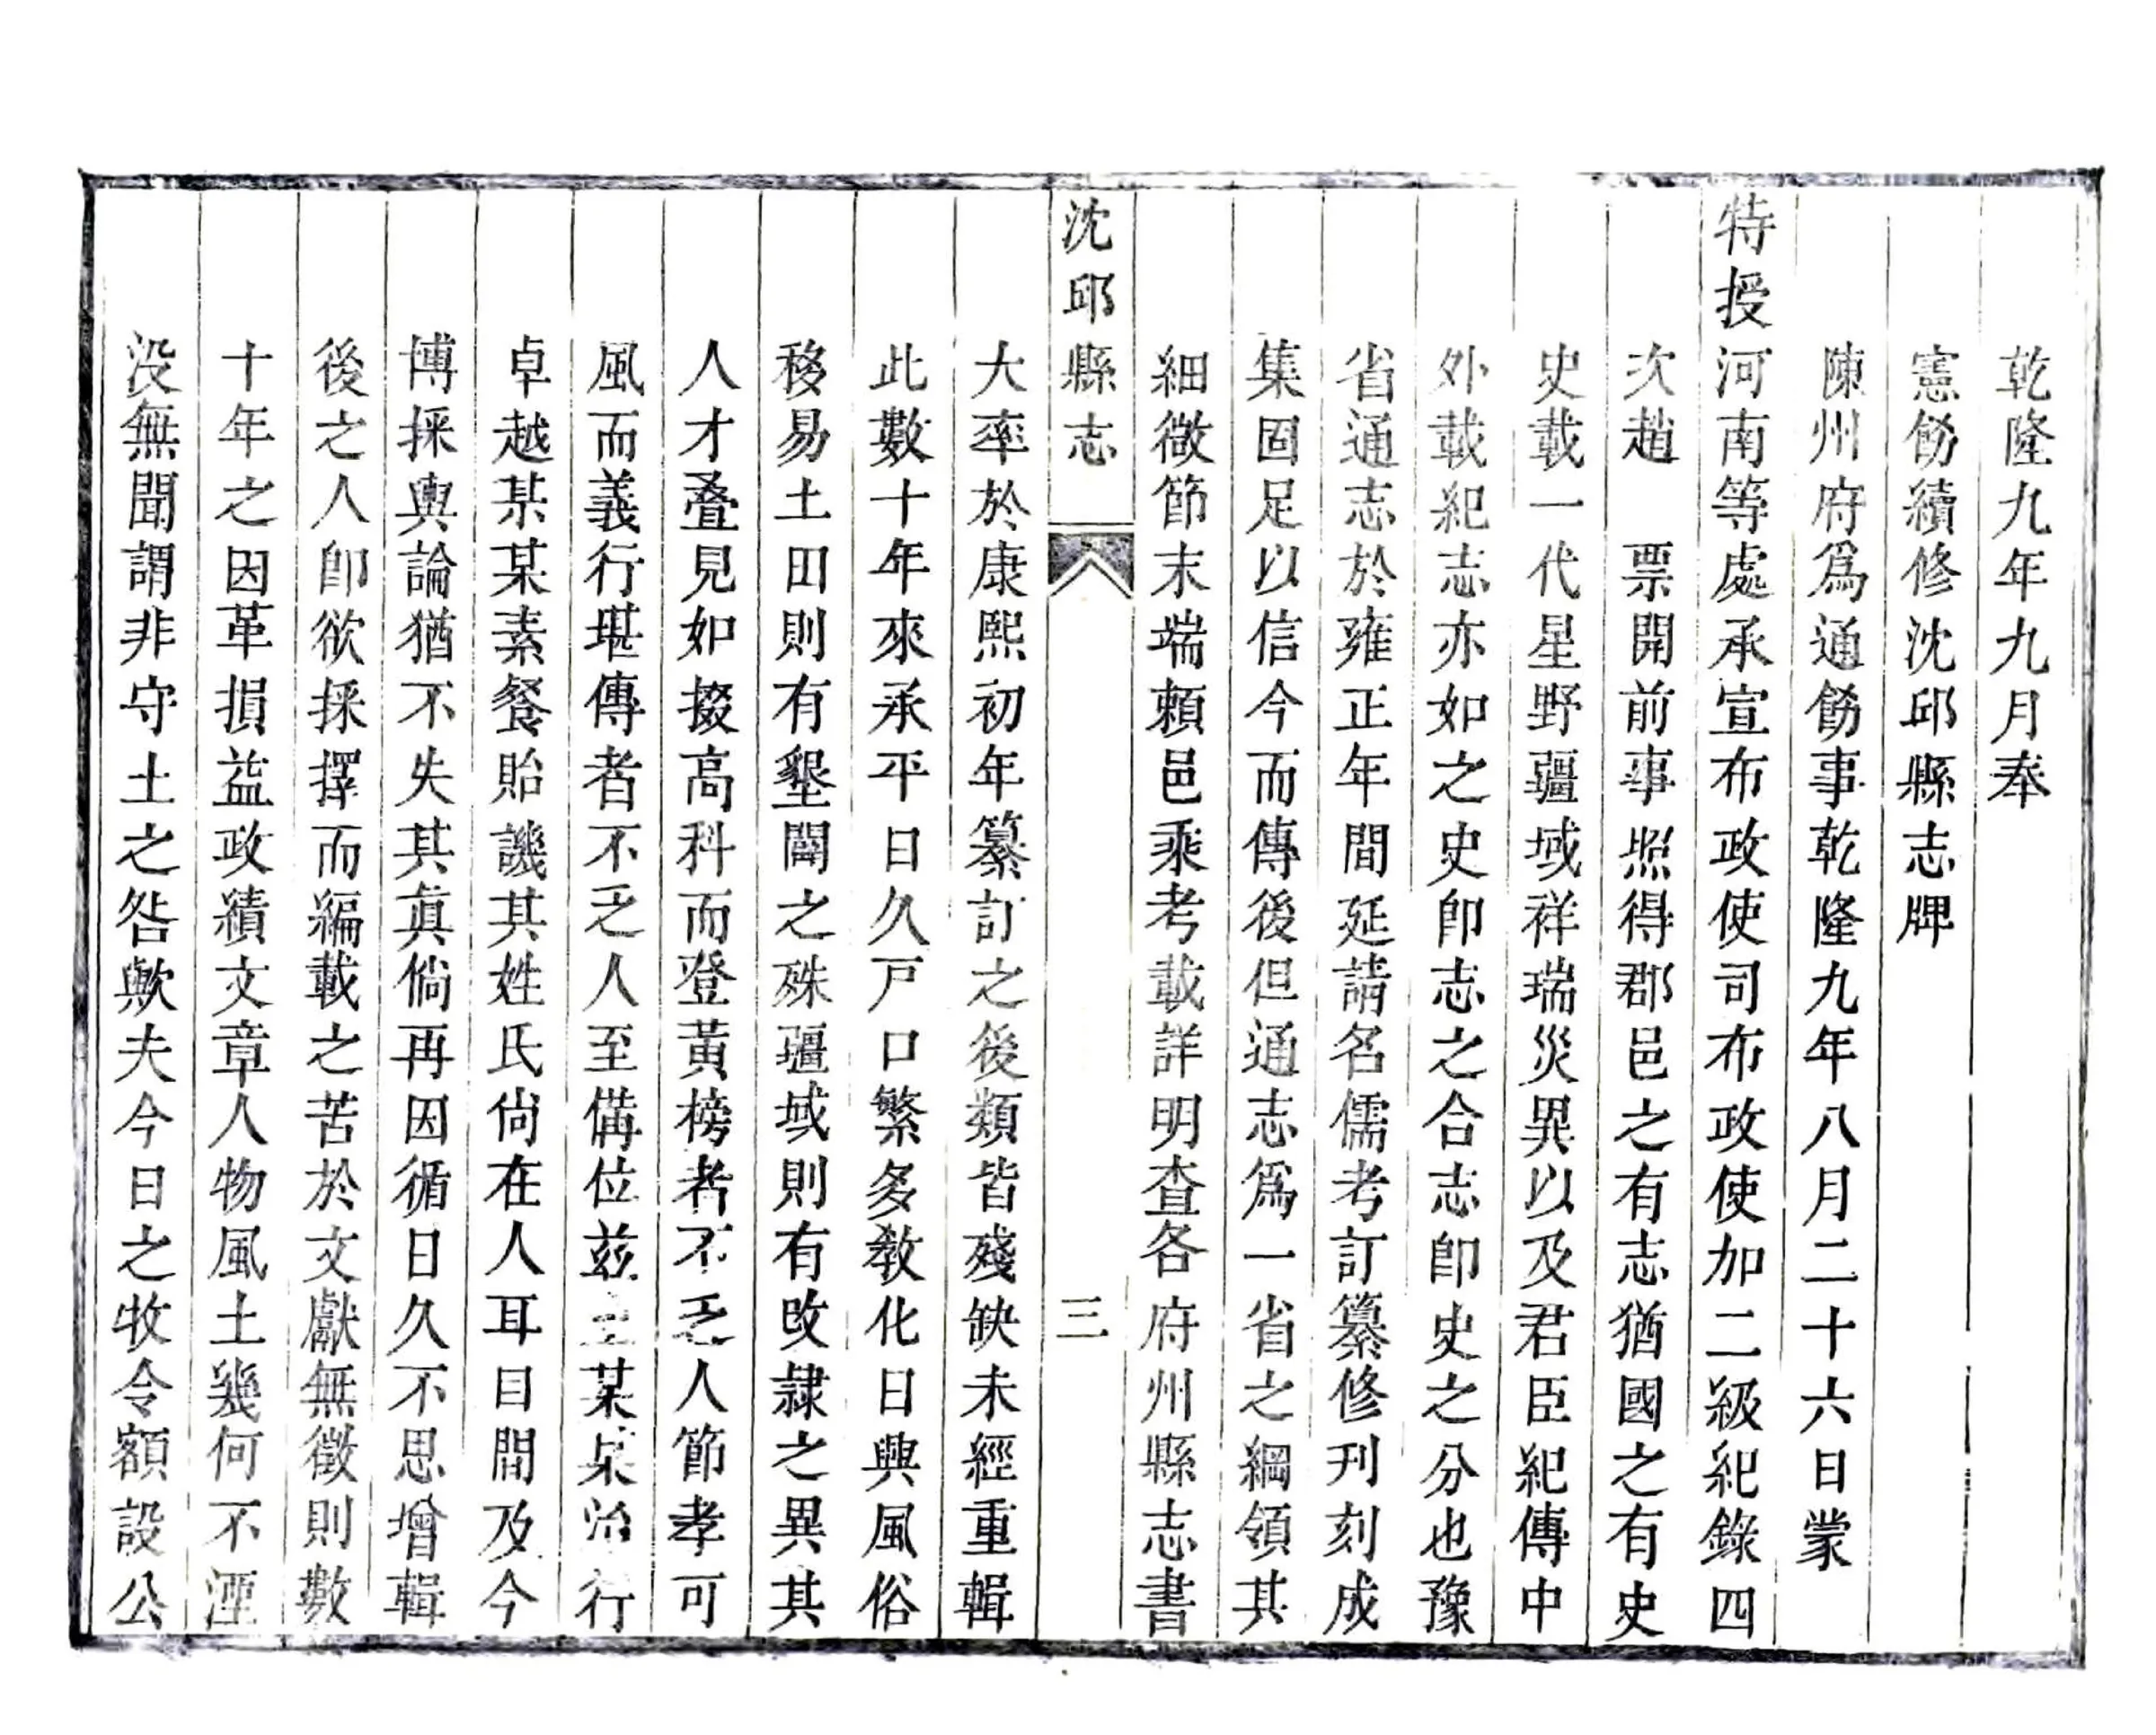 乾隆九年九月奉
憲飭續修沈邱縣志牌
陳州府爲通飭事乾隆九年八月二十六日蒙
特授河南等處承宣布政使司布政使加二級紀錄四
次趙　票開前事照得郡邑之有志猶國之有史
史載一代星野疆域祥瑞災異以及君臣紀傳中
外載紀志亦如之史卽志之合志卽史之分也豫
省通志於雍正年間延請名儒考訂纂修刊刻成
集固足以信今而傳後但通志爲一省之綱領其
細微節末端賴邑乘考載詳明查各府州縣志書
沈邱縣志
三
大率於康熙初年纂訂之後類皆殘缺未經重輯
此數十年來承平日久戸口繁多教化日興風俗
移易土田則有墾闢之殊疆域則有改隸之異其
人才叠見如掇高科而登黃榜者不乏人節孝可
風而義行堪傳者不乏人至備位茲土某某治行
卓越某某素餐貽譏其姓氏尙在人耳目間及今
博採輿論猶不失其眞倘再因循日久不思增輯
後之人卽欲採擇而編載之苦於文獻無徵則數
十年之因革損益政績文章人物風土幾何不湮
没無聞謂非守土之咎歟夫今日之牧令額設公